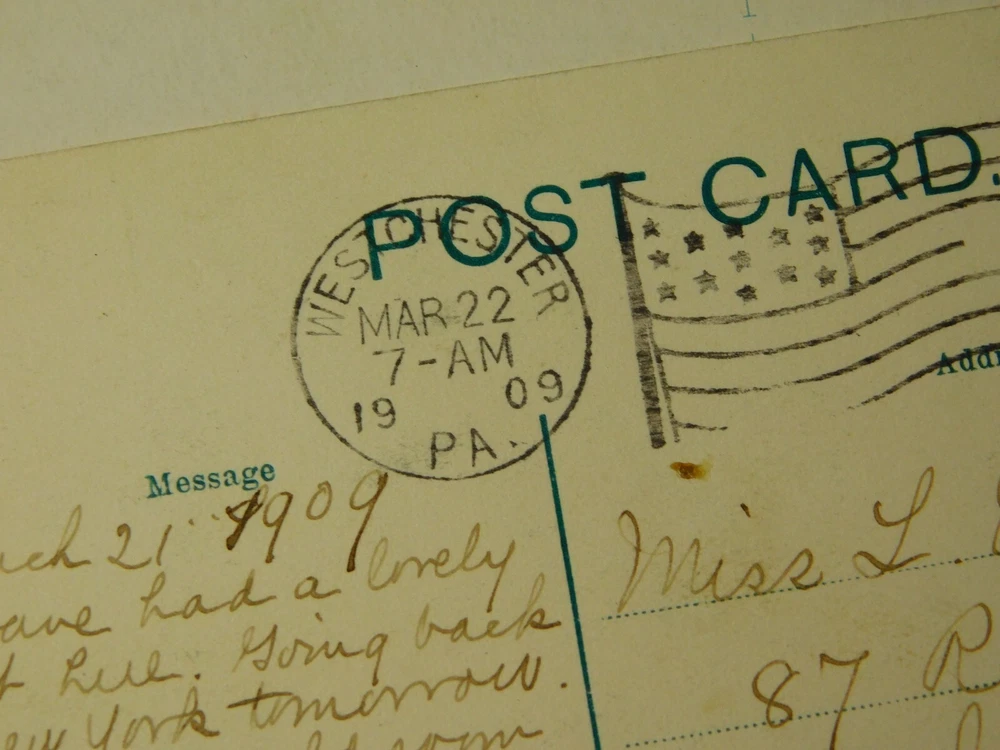 POST CARD.
WEST CHESTER
MAR 22
7-AM
19 09
PA.
Message
ch 21" 1909
ave had a lovely
Going back
York tomorrow.
room
Addr
Miss L.
87 R